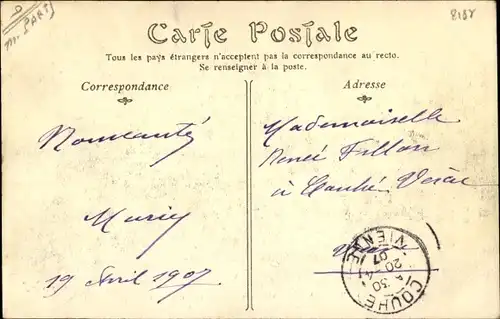 8187
Carte Postale
Tous les pays étrangers n'acceptent pas la correspondance au recto.
Se renseigner à la poste.
Correspondance
Adresse
Mademoiselle
Renée Fillon
à Couhé Vérac
Vienne
Marie
19 Avril 1907
COUHE VIENNE
30
20-4
07